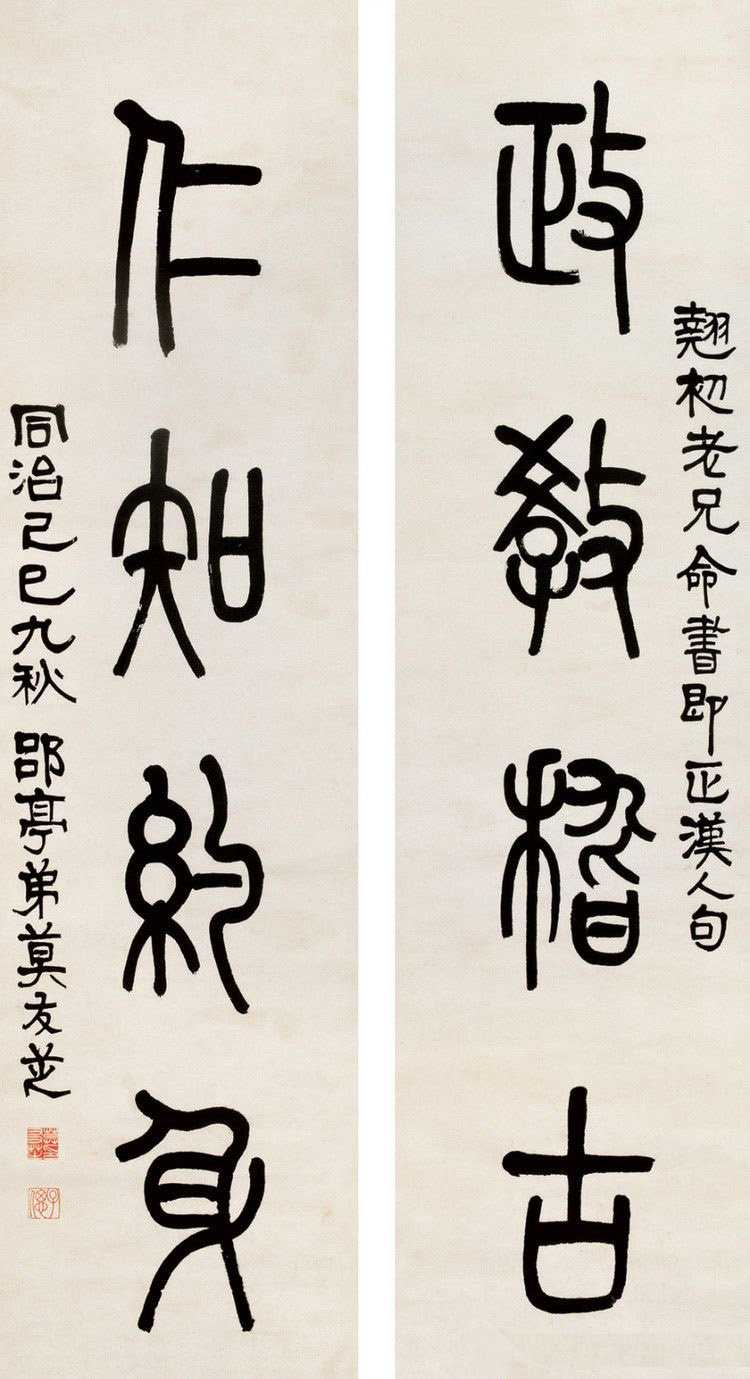 政教稽古
翹初老兄命書即正漢人句
仁知約身
同治己巳九秋 郘亭弟莫友芝
子偲